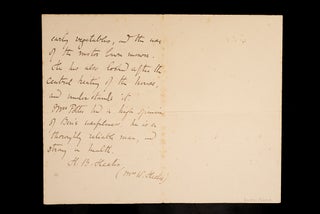 early vegetables, and the use
of the motor lawn mower.
He has also looked after the
central heating of the house,
and understands it.
Mrs Potter had a high opinion
of Ben's usefulness he is a
thoroughly reliable man, and
strong in health.
H. B. Heelis
(Mrs W. Heelis)